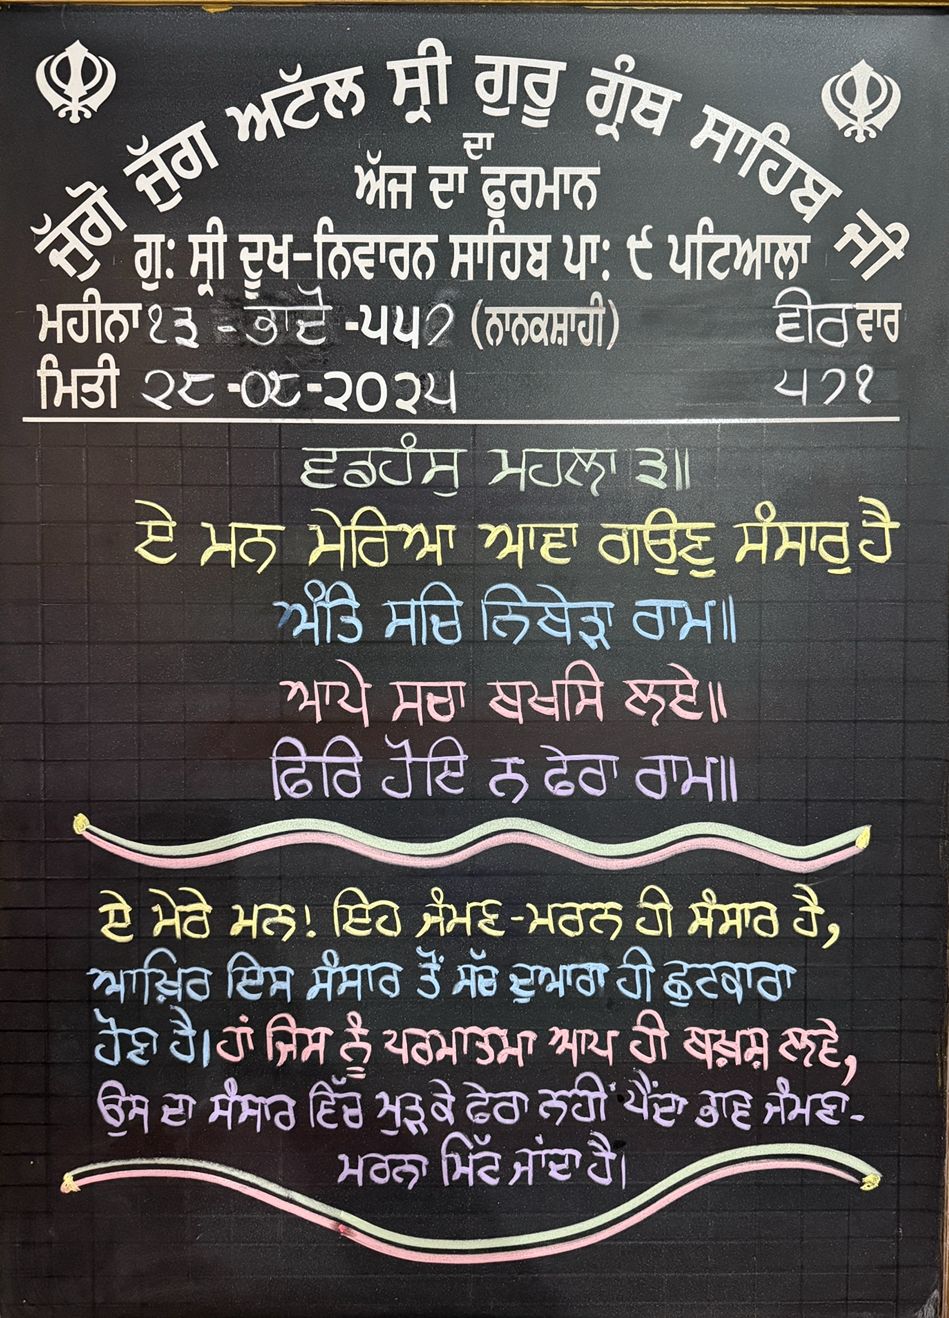 ਜੁੱਗੋ ਜੁੱਗ ਅਟੱਲ ਸ੍ਰੀ ਗੁਰੂ ਗ੍ਰੰਥ ਸਾਹਿਬ ਜੀ
ਦਾ
ਅੱਜ ਦਾ ਫੁਰਮਾਨ
ਗੁ: ਸ੍ਰੀ ਦੂਖ-ਨਿਵਾਰਨ ਸਾਹਿਬ ਪਾ: ੯ ਪਟਿਆਲਾ
ਮਹੀਨਾ ੧੩ - ਭਾਦੋਂ -੫੫੭ (ਨਾਨਕਸ਼ਾਹੀ) ਵੀਰਵਾਰ
ਮਿਤੀ ੨੮ -੦੮-੨੦੨੫ ੫੭੧
ਵਡਹੰਸੁ ਮਹਲਾ ੩॥
ਏ ਮਨ ਮੇਰਿਆ ਆਵਾ ਗਉਣੁ ਸੰਸਾਰੁ ਹੈ
ਅੰਤਿ ਸਚਿ ਨਿਬੇੜਾ ਰਾਮ॥
ਆਪੇ ਸਚਾ ਬਖਸਿ ਲਏ॥
ਫਿਰਿ ਹੋਇ ਨ ਫੇਰਾ ਰਾਮ॥
ਏ ਮੇਰੇ ਮਨ! ਇਹ ਜੰਮਣ-ਮਰਨ ਹੀ ਸੰਸਾਰ ਹੈ,
ਆਖ਼ਿਰ ਇਸ ਸੰਸਾਰ ਤੋਂ ਸੱਚ ਦੁਆਰਾ ਹੀ ਛੁਟਕਾਰਾ
ਹੋਣਾ ਹੈ। ਹਾਂ ਜਿਸ ਨੂੰ ਪਰਮਾਤਮਾ ਆਪ ਹੀ ਬਖ਼ਸ਼ ਲਵੇ,
ਉਸ ਦਾ ਸੰਸਾਰ ਵਿੱਚ ਮੁੜਕੇ ਫੇਰਾ ਨਹੀਂ ਪੈਂਦਾ ਭਾਵ ਜੰਮਣਾ-
ਮਰਨਾ ਮਿੱਟ ਜਾਂਦਾ ਹੈ।